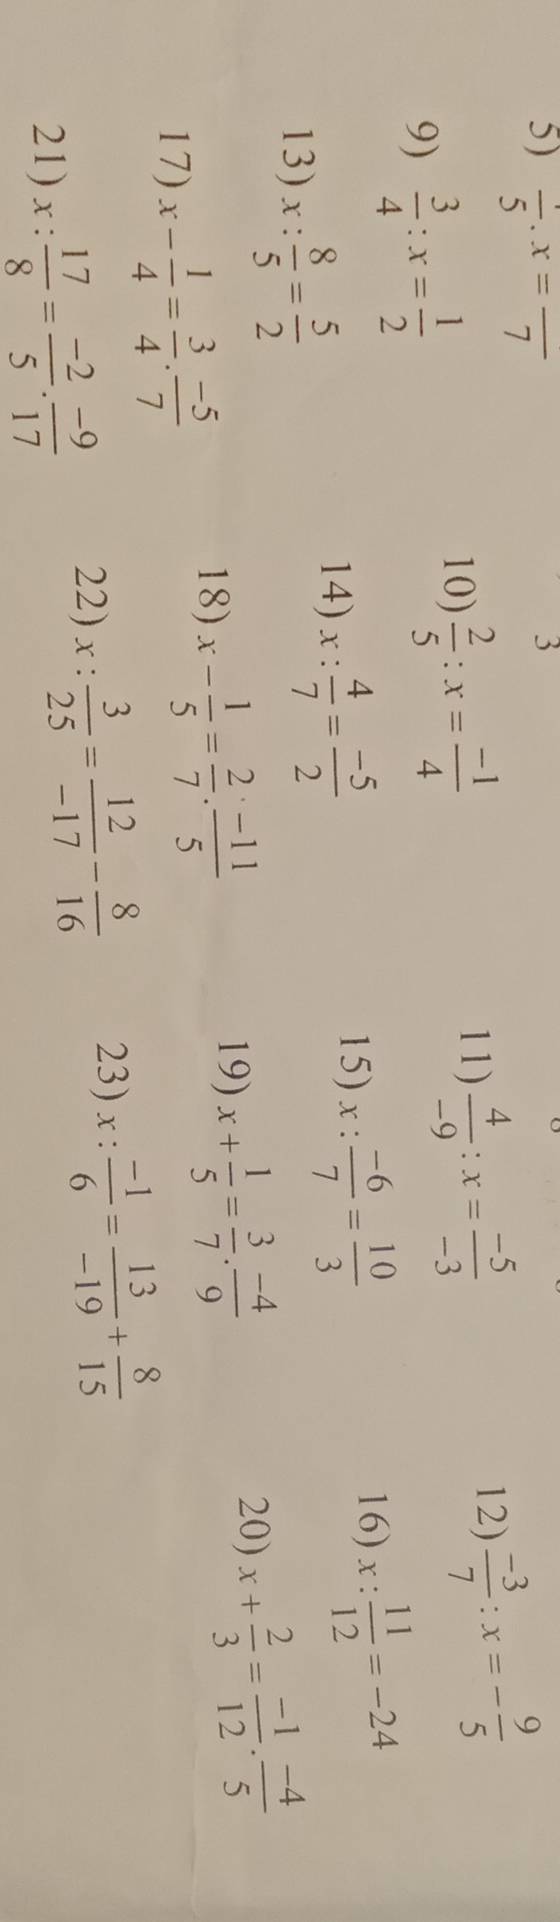 5) /5 . x = /7 3
9) 3/4 : x = 1/2 10) 2/5 : x = -1/4 11) 4/-9 : x = -5/-3 12) -3/7 : x = - 9/5
13) x : 8/5 = 5/2 14) x : 4/7 = -5/2 15) x : -6/7 = 10/3 16) x : 11/12 = -24
17) x - 1/4 = 3/4 . -5/7 18) x - 1/5 = 2/7 . -11/5 19) x + 1/5 = 3/7 . -4/9 20) x + 2/3 = -1/12 . -4/5
21) x : 17/8 = -2/5 . -9/17 22) x : 3/25 = 12/-17 - 8/16 23) x : -1/6 = 13/-19 + 8/15